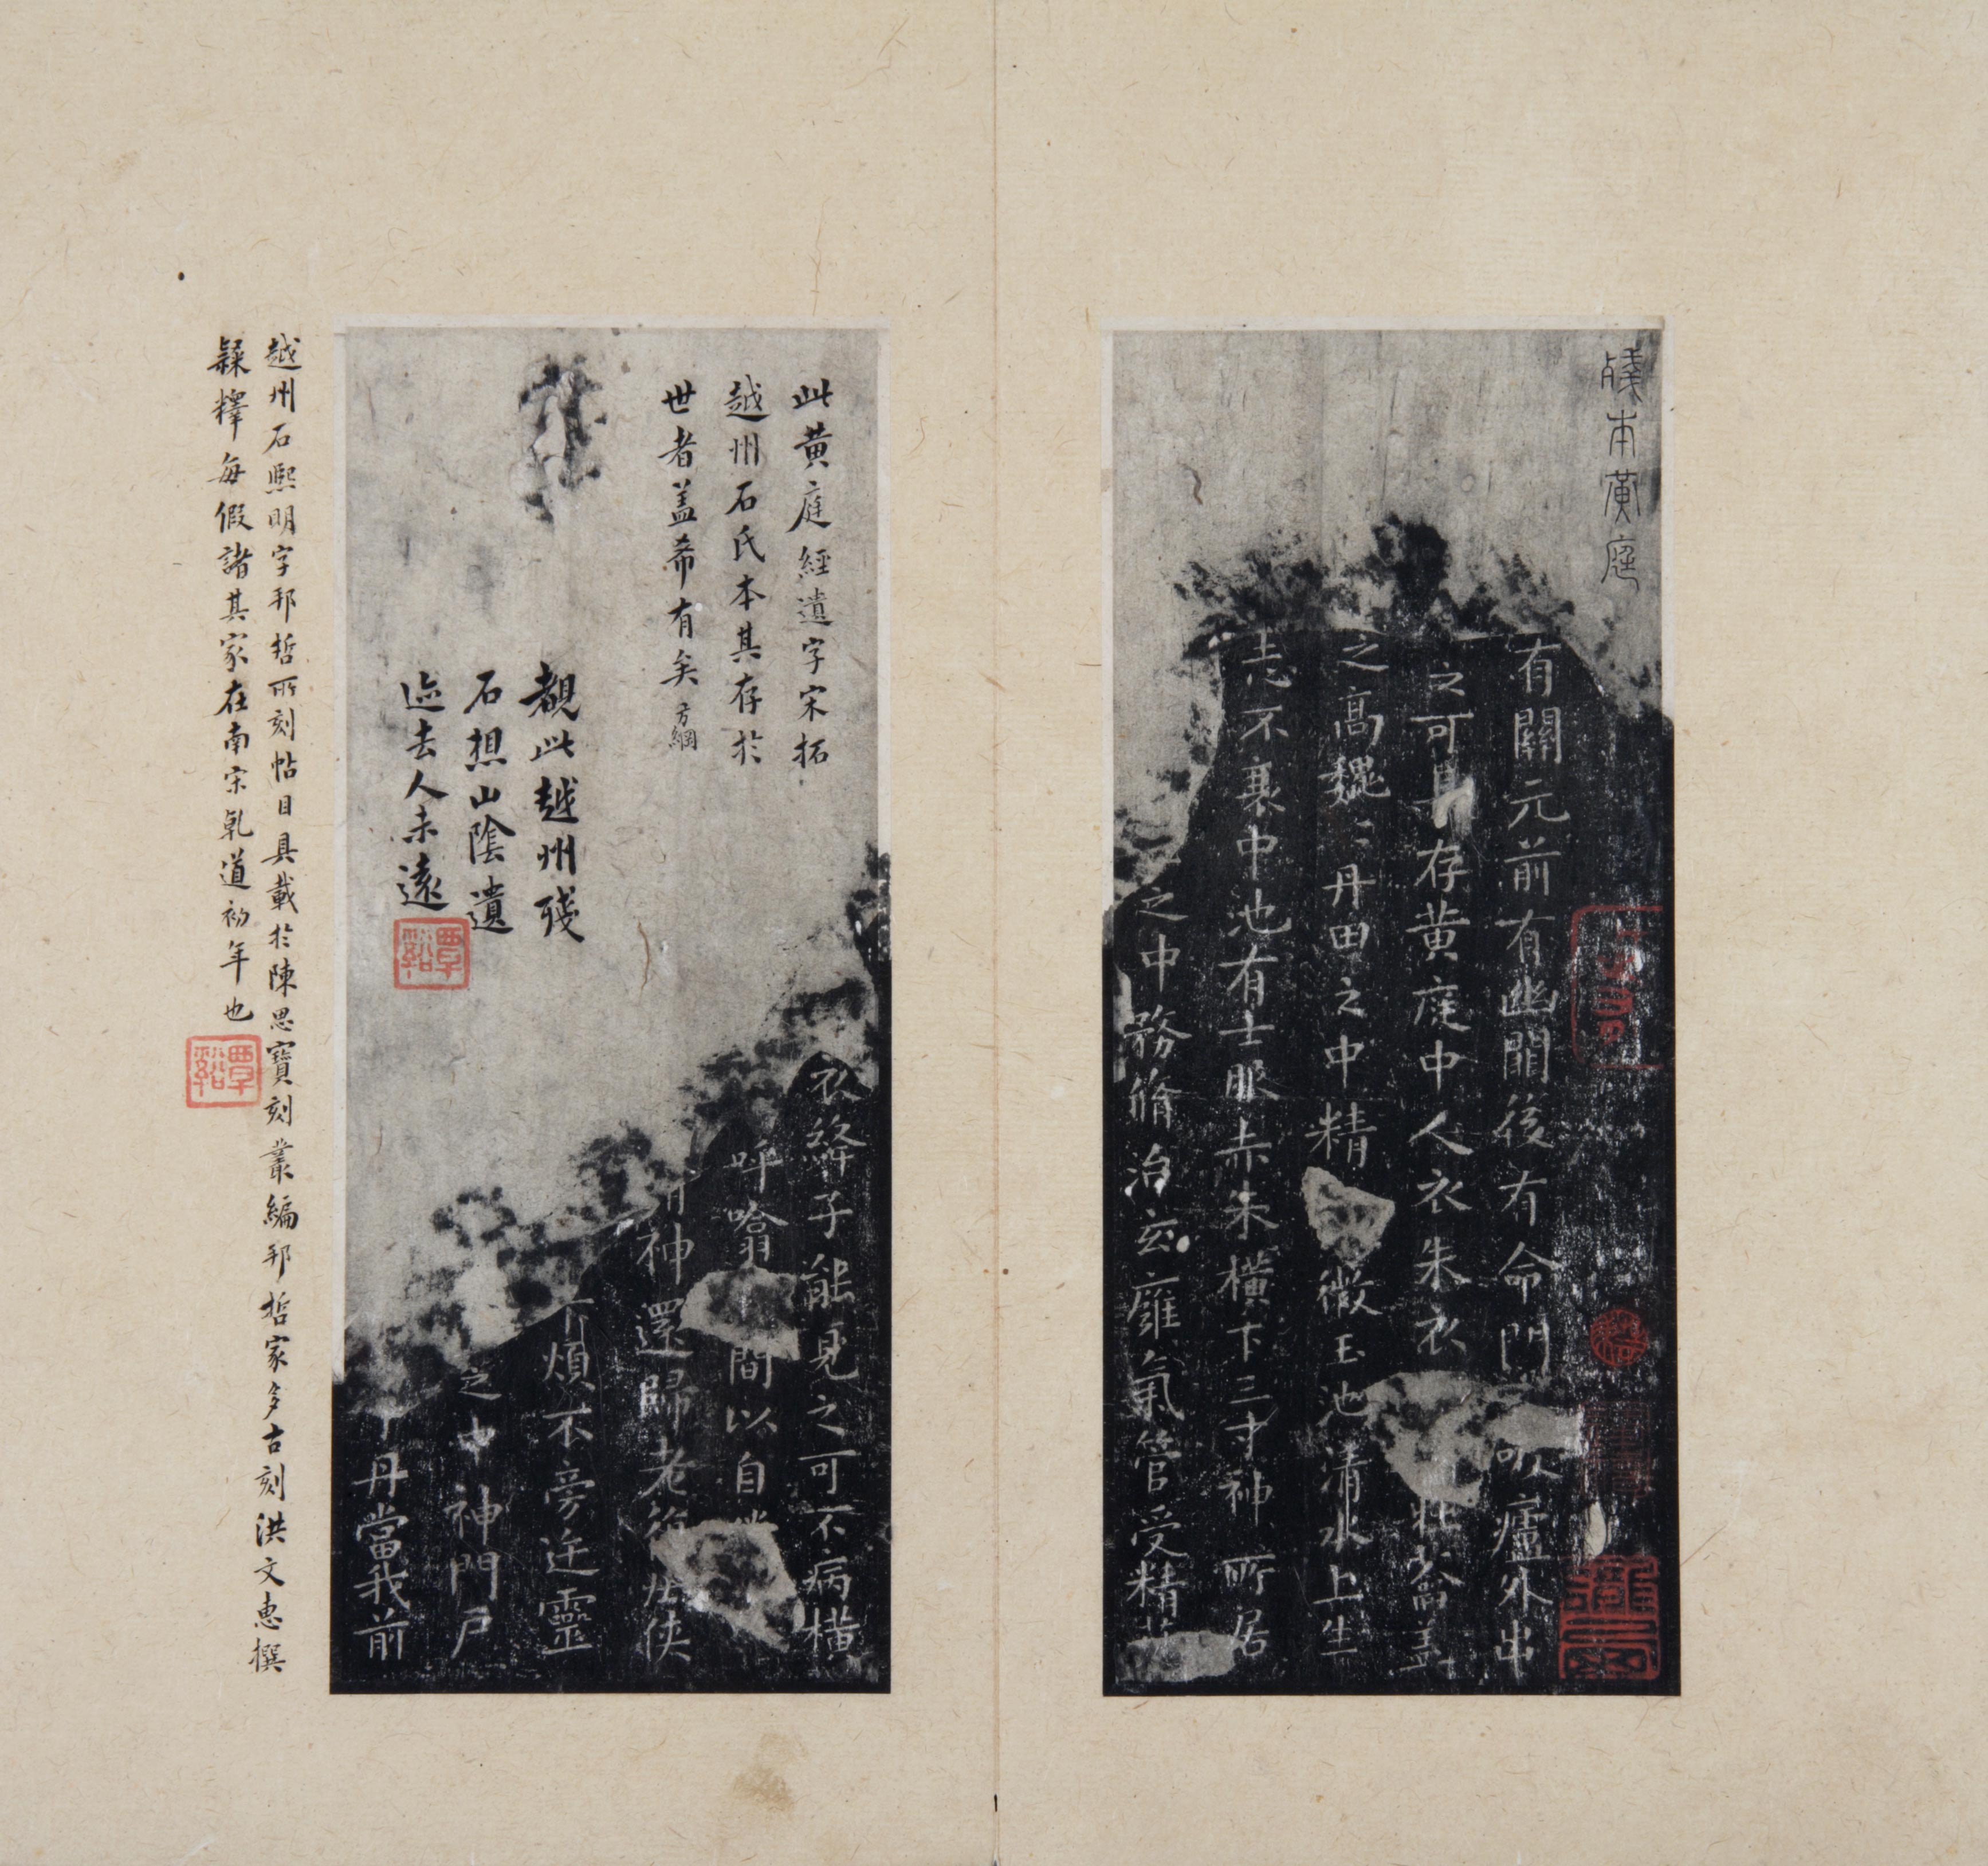 殘本黃庭
有關元前有幽闕後有命門
吸廬外出
之可具存黃庭中人衣朱衣
壯籥蓋
之高巍巍丹田之中精
微玉池清水上生
志不衰中池有士服赤朱橫下三寸神所居
之中務脩治玄癰氣管受精
此黃庭經遺字宋拓
越州石氏本其存於
世者盖希有矣方綱
覩此越州殘
石想山陰遺
迹去人未遠
覃谿
衣絳子能見之可不病橫
呼噏
間以自
神還歸老
俠
不煩不旁迕靈
之中神門戶
丹當我前
越州石熙明字邦哲所刻帖目具載於陳思寶刻叢編邦哲家多古刻洪文惠撰
隸釋每假諸其家在南宋乾道初年也
覃谿